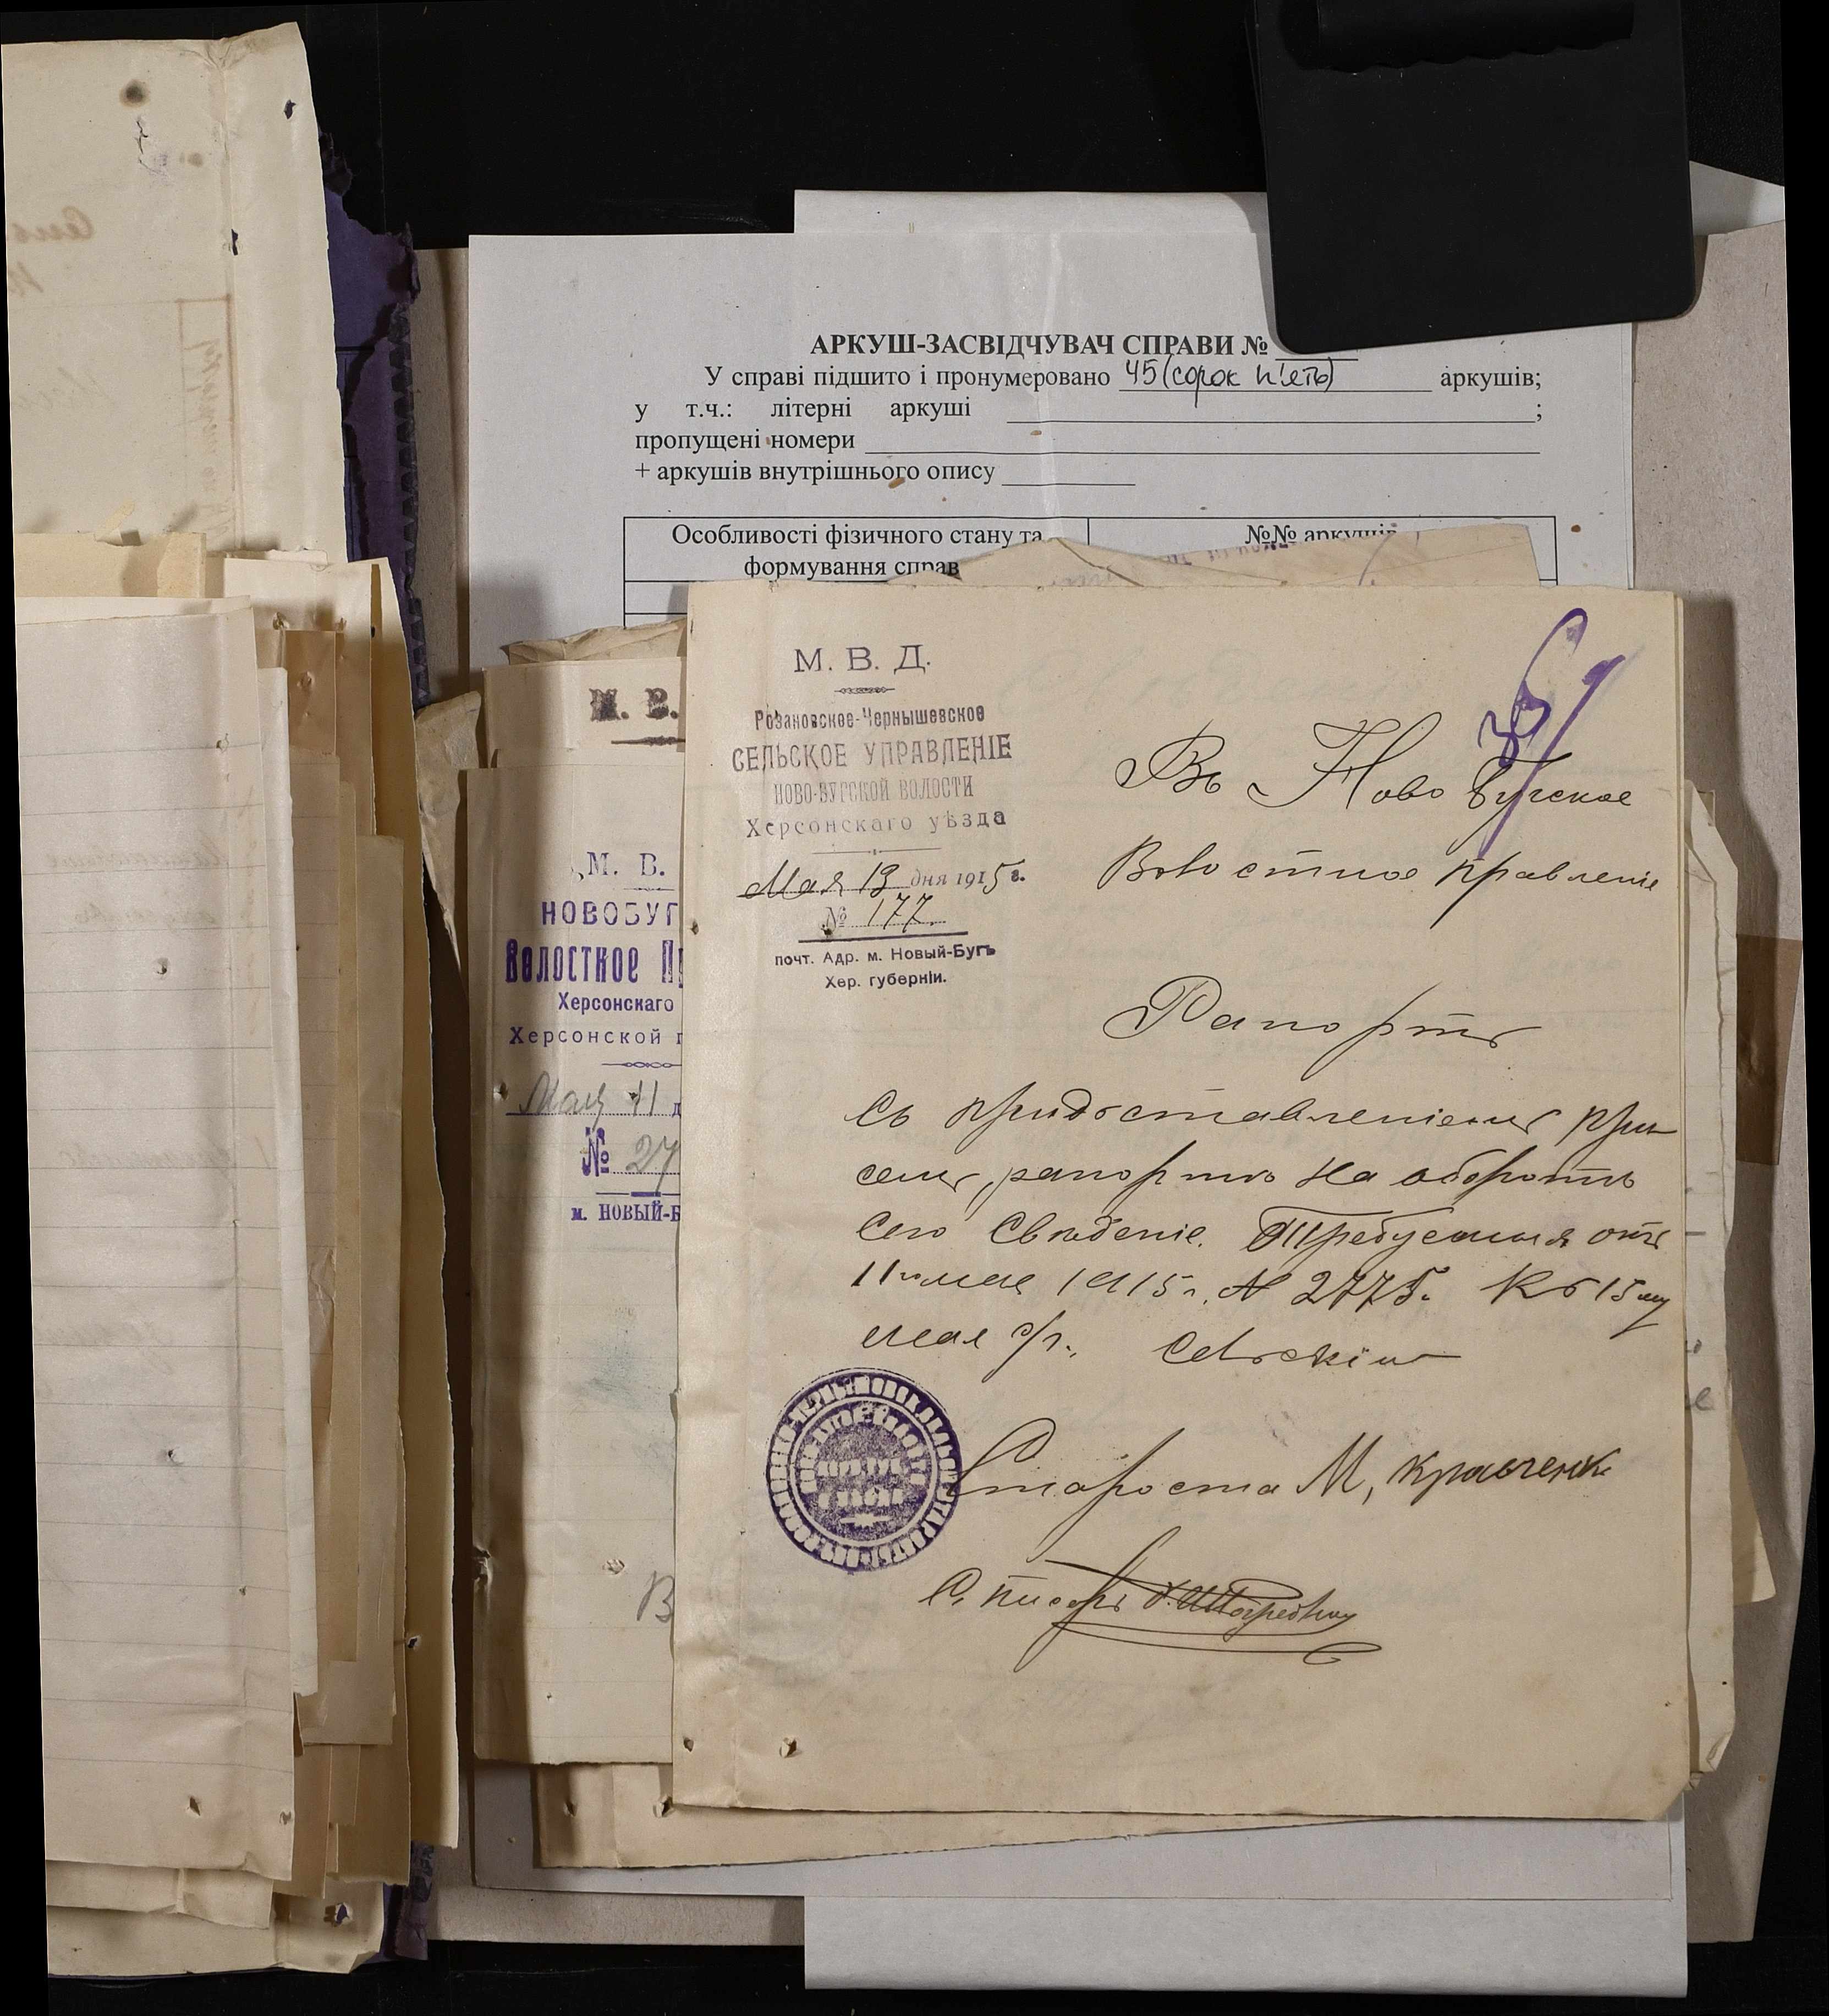 АРКУШ-ЗАСВІДЧУВАЧ СПРАВИ №
У справі підшито і пронумеровано 45 (сорок п'ять) аркушів;
у т.ч.: літерні аркуші ;
пропущені номери
+ аркушів внутрішнього опису
Особливості фізичного стану та
формування справ
№№ аркушів
М. В.
М. В.
НОВОБУГ
Волостное Пр
Херсонскаго
Херсонской г
Мая 11 д
№ 27
м. НОВЫЙ-Б
В
М. В. Д.
Розановское-Чернышевское
СЕЛЬСКОЕ УПРАВЛЕНІЕ
НОВО-БУГСКОЙ ВОЛОСТИ
Херсонскаго уѣзда
Мая 13 дня 1915 г.
№ 177.
почт. Адр. м. Новый-Бугъ
Хер. губерніи.
Въ Ново Бугское
Волостное правленіе
Рапортъ
Съ придоставленіемъ при
семъ, рапортъ на оборотѣ
сего Свѣденіе. Требуемыя отъ
11го мая 1915 г. № 2775. Къ 15му
мая с/г. Сельскій
Староста М, Кравченк
С. писарь